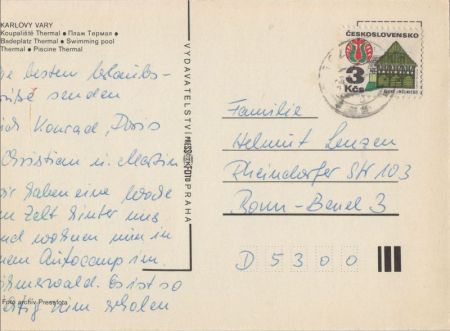 KARLOVY VARY
Koupaliště Thermal • Плаж Термал •
Badeplatz Thermal • Swimming pool
Thermal • Piscine Thermal
besten Urlaubs-
senden
Konrad, Doris
Christian u. Martin
haben eine Woche
Zelt hinter uns
und wohnen nun in
Autocamp im
Es ist so
Foto archiv Pressfoto
VYDAVATELSTVÍ PRESSFOTO PRAHA
ČESKOSLOVENSKO
3
Kčs
Familie
Helmut Lenzen
Rheindorfer Str 103
Bonn-Beuel 3
D 5300